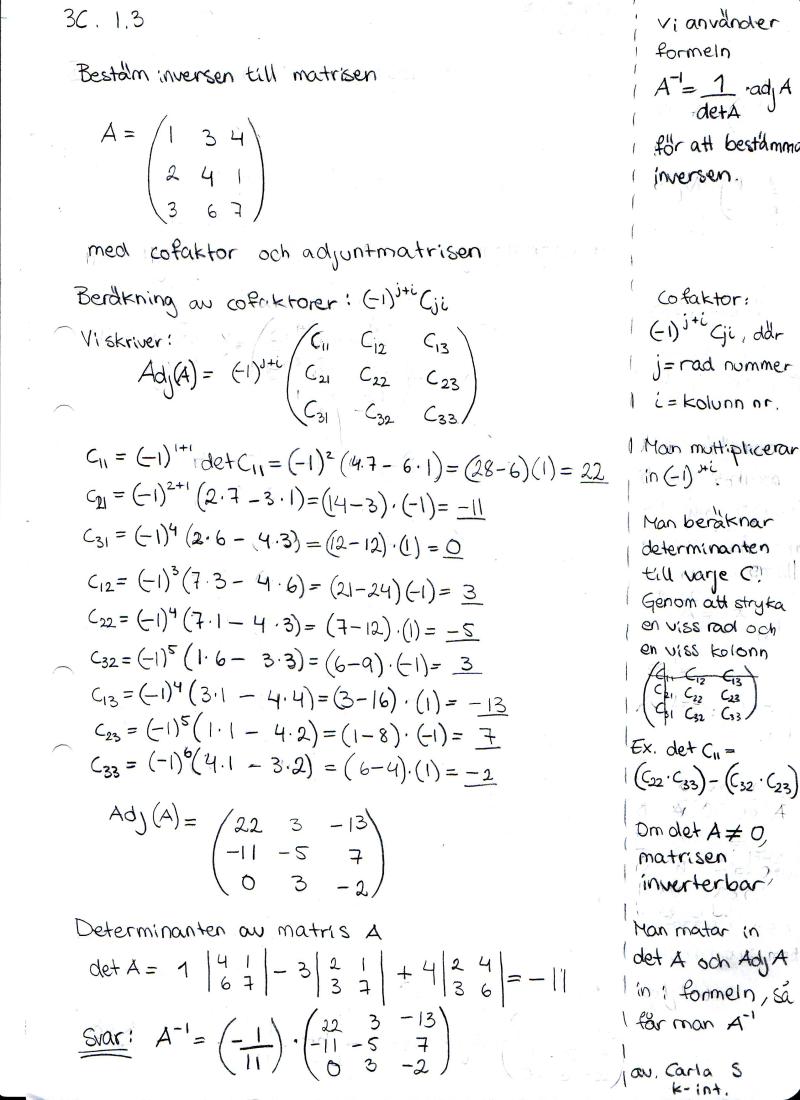 3C. 1.3
Bestäm inversen till matrisen
A = (1 3 4
2 4 1
3 6 7)
med cofaktor och adjuntmatrisen
Beräkning av cofaktorer: (-1)^j+i Cji
Vi skriver:
Adj(A) = (-1)^j+i (C11 C12 C13
C21 C22 C23
C31 C32 C33)
C11 = (-1)^1+1 det C11 = (-1)^2 (4·7 - 6·1) = (28-6)(1) = 22
C21 = (-1)^2+1 (2·7 - 3·1) = (14-3)·(-1) = -11
C31 = (-1)^4 (2·6 - 4·3) = (12-12)·(1) = 0
C12 = (-1)^3 (7·3 - 4·6) = (21-24)(-1) = 3
C22 = (-1)^4 (7·1 - 4·3) = (7-12)·(1) = -5
C32 = (-1)^5 (1·6 - 3·3) = (6-9)·(-1) = 3
C13 = (-1)^4 (3·1 - 4·4) = (3-16)·(1) = -13
C23 = (-1)^5 (1·1 - 4·2) = (1-8)·(-1) = 7
C33 = (-1)^6 (4·1 - 3·2) = (6-4)·(1) = -2
Adj(A) = (22 3 -13
-11 -5 7
0 3 -2)
Determinanten av matris A
det A = 1 |4 1 - 3 |2 1 + 4 |2 4 = -11
6 7| 3 7| 3 6|
Svar: A^-1 = (-1/11) · (22 3 -13
-11 -5 7
0 3 -2)
Vi använder
formeln
A^-1 = 1/detA · adj A
för att bestämma
inversen.
Cofaktor:
(-1)^j+i Cji, där
j = rad nummer
i = kolumn nr.
Man multiplicerar
in (-1)^j+i.
Man beräknar
determinanten
till varje C!
Genom att stryka
en viss rad och
en viss kolonn
(C11 C12 C13
C21 C22 C23
C31 C32 C33)
Ex. det C11 =
(C22·C33) - (C32·C23)
Om det A ≠ 0,
matrisen
inverterbar
Man matar in
det A och Adj A
in i formeln, så
får man A^-1
av. Carla S
k-int.